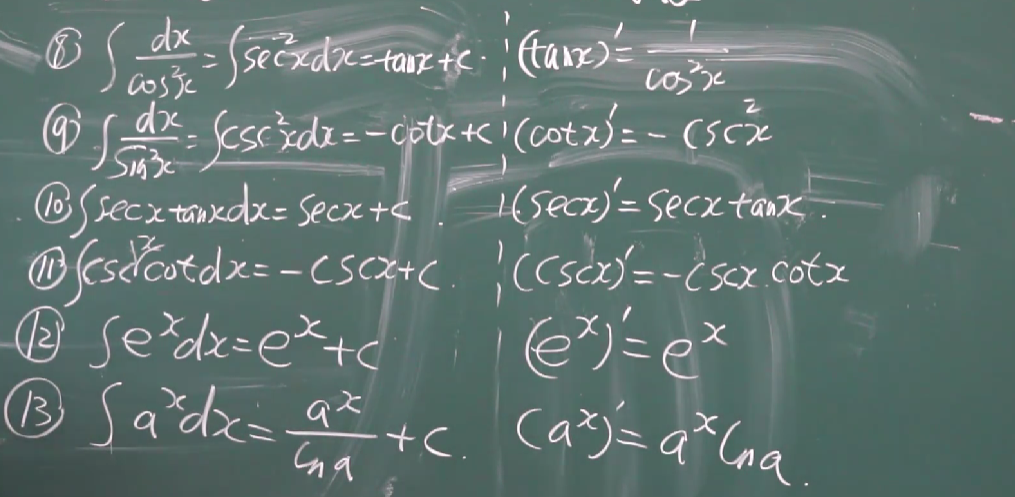 ⑧ ∫ dx/cos²x = ∫sec²xdx = tanx + c. (tanx)′ = 1/cos²x
⑨ ∫ dx/sin²x = ∫csc²xdx = -cotx + c (cotx)′ = - csc²x
⑩ ∫secxtanxdx = secx + c. (secx)′ = secxtanx.
⑪ ∫cscxcotdx = -cscx + c. (cscx)′ = -cscx.cotx
⑫ ∫eˣdx = eˣ + c (eˣ)′ = eˣ
⑬ ∫aˣdx = aˣ/lna + c. (aˣ)′ = aˣlna.